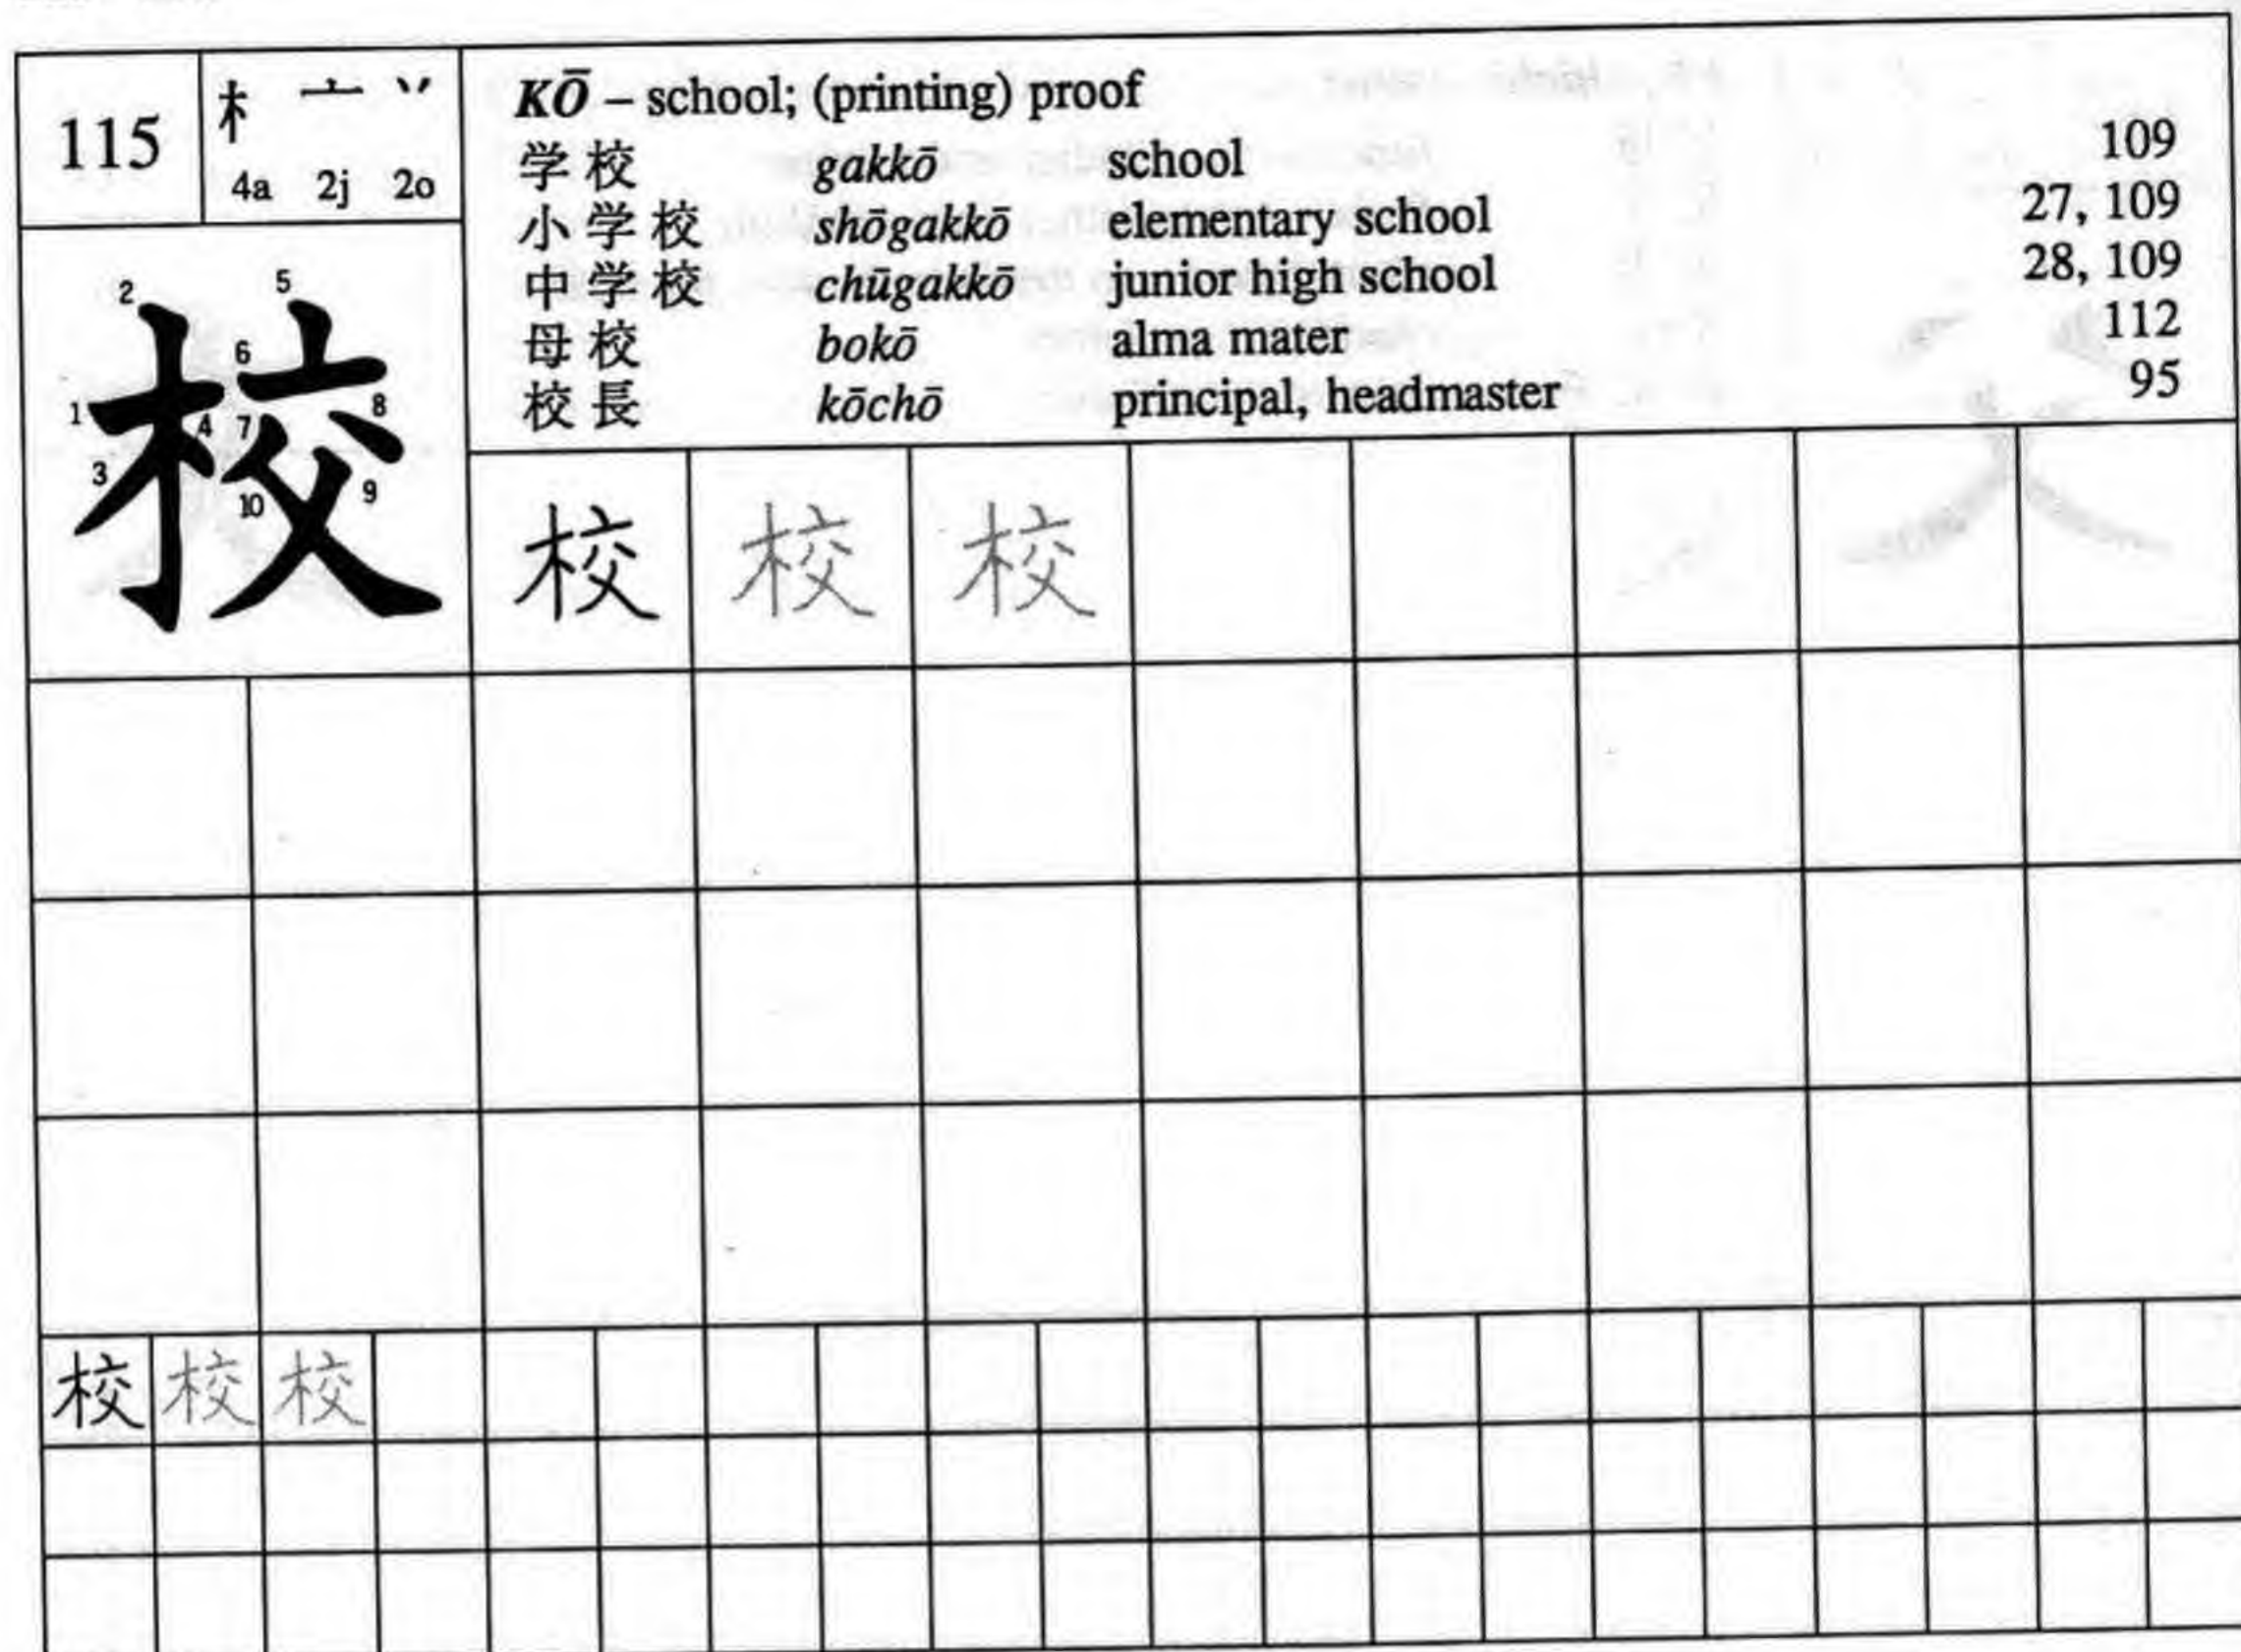 115
木 亠 丷
4a 2j 2o
KŌ – school; (printing) proof
学校 gakkō school 109
小学校 shōgakkō elementary school 27, 109
中学校 chūgakkō junior high school 28, 109
母校 bokō alma mater 112
校長 kōchō principal, headmaster 95
校
1 2 3 4 5 6 7 8 9 10
校 校 校
校 校 校